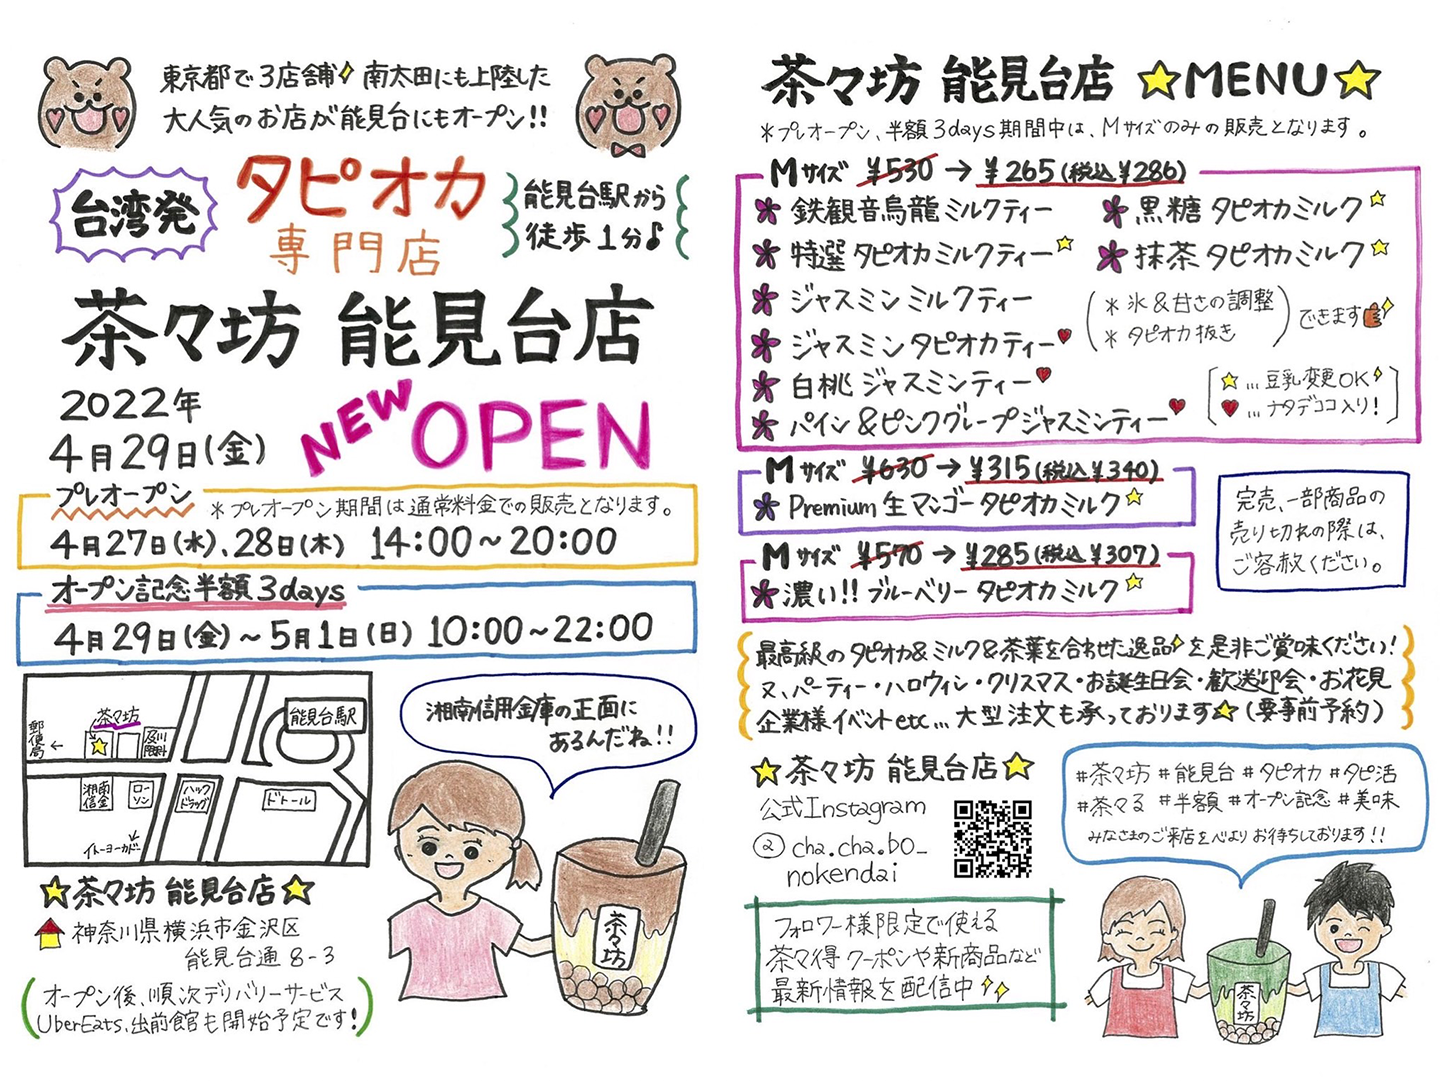 東京都で3店舗 南太田にも上陸した
大人気のお店が能見台にもオープン!!
台湾発
タピオカ
専門店
能見台駅から
徒歩1分♪
茶々坊 能見台店
2022年
4月29日(金)
NEW OPEN
プレオープン
*プレオープン期間は通常料金での販売となります。
4月27日(水)、28日(木) 14:00~20:00
オープン記念半額3days
4月29日(金)~5月1日(日) 10:00~22:00
茶々坊
郵便局
←
及川眼科
能見台駅
湘南信金
ローソン
ハックドラッグ
ドトール
イトーヨーカドー
湘南信用金庫の正面に
あるんだね!!
茶々坊
☆茶々坊 能見台店☆
神奈川県横浜市金沢区
能見台通8-3
オープン後、順次デリバリーサービス
UberEats、出前館も開始予定です!
茶々坊 能見台店 ☆MENU☆
*プレオープン、半額3days期間中は、Mサイズのみの販売となります。
Mサイズ ¥530→¥265(税込¥286)
鉄観音烏龍ミルクティー
特選タピオカミルクティー☆
ジャスミンミルクティー
ジャスミンタピオカティー♥
白桃ジャスミンティー♥
パイン&ピンクグループジャスミンティー♥
黒糖タピオカミルク☆
抹茶タピオカミルク☆
(*氷&甘さの調整
*タピオカ抜き)
できます
☆…豆乳変更OK
♥…ナタデココ入り!
Mサイズ ¥630→¥315(税込¥340)
Premium生マンゴータピオカミルク☆
Mサイズ ¥570→¥285(税込¥307)
濃い!!ブルーベリータピオカミルク☆
完売、一部商品の
売り切れの際は、
ご容赦ください。
最高級のタピオカ&ミルク&茶葉を合わせた逸品を是非ご賞味ください!
又、パーティー・ハロウィン・クリスマス・お誕生日会・歓送迎会・お花見
企業様イベントetc…大型注文も承っております☆(要事前予約)
☆茶々坊 能見台店☆
公式Instagram
@cha.cha.bo_
nokendai
フォロワー様限定で使える
茶々得クーポンや新商品など
最新情報を配信中
#茶々坊 #能見台 #タピオカ #タピ活
#茶々る #半額 #オープン記念 #美味
みなさまのご来店を心よりお待ちしております!!
茶々坊